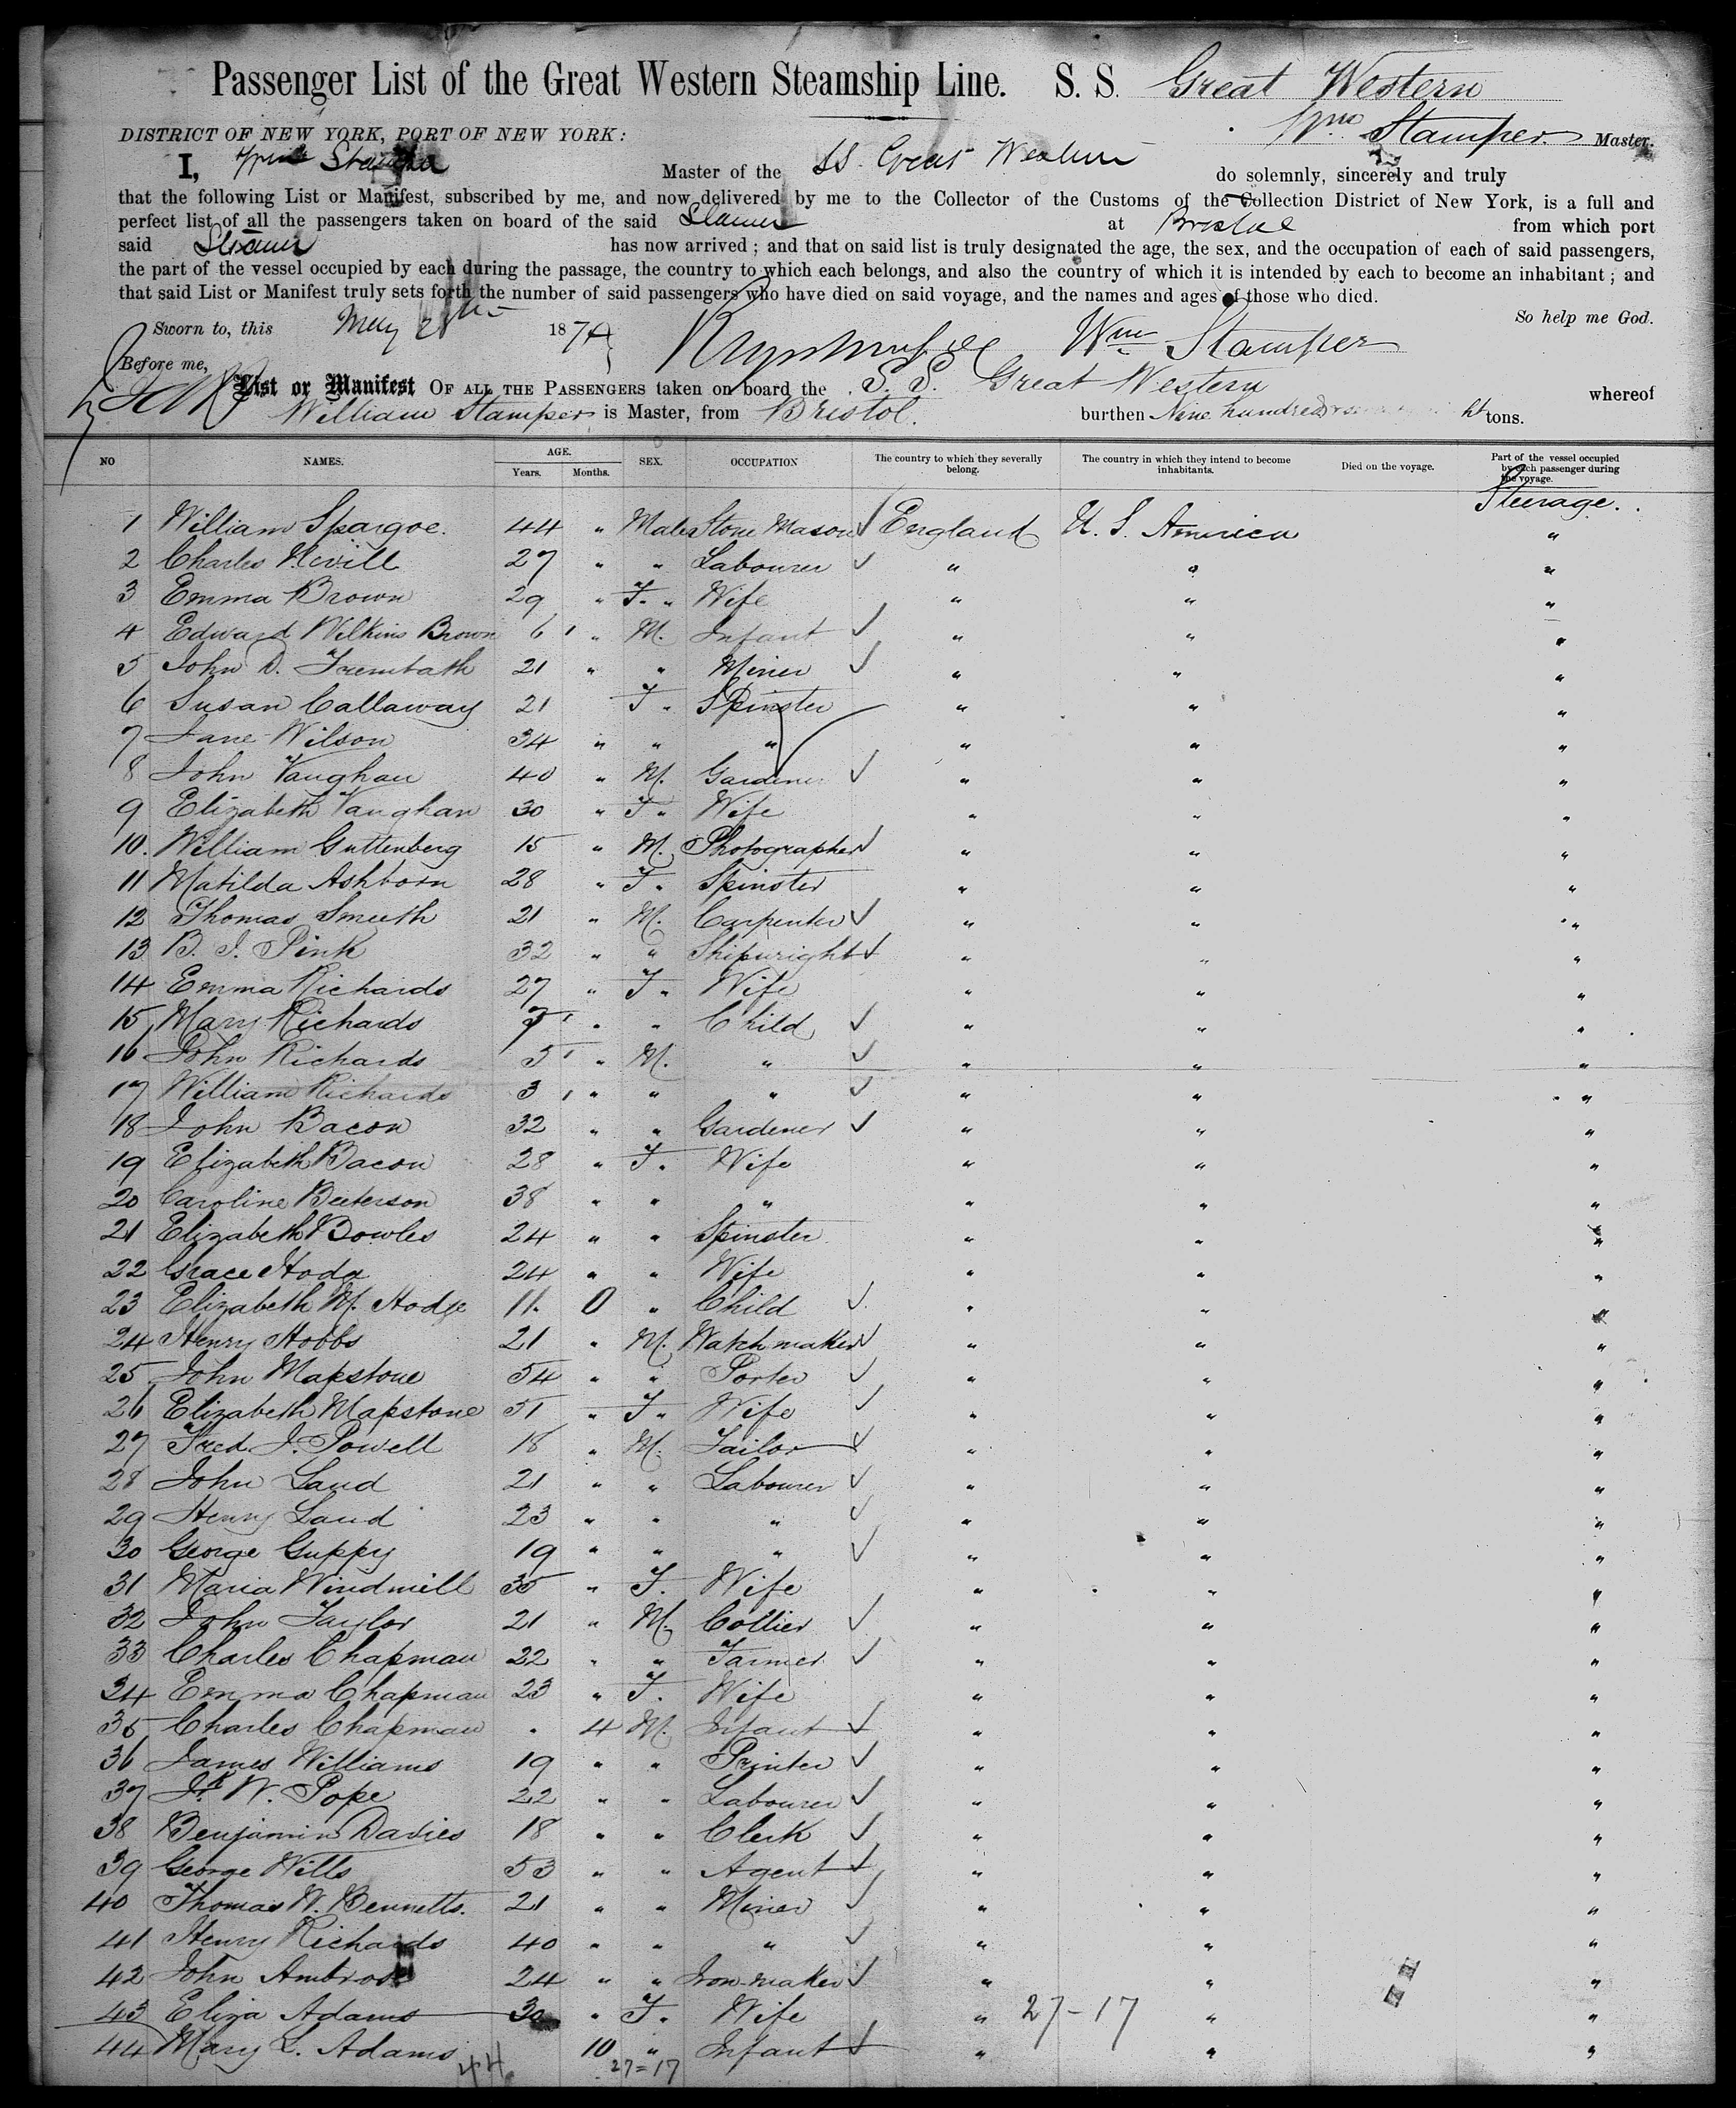 Passenger List of the Great Western Steamship Line. S. S. Great Western
DISTRICT OF NEW YORK, PORT OF NEW YORK: Wm Stamper Master.
I, Wm Stamper Master of the SS Great Western do solemnly, sincerely and truly
that the following List or Manifest, subscribed by me, and now delivered by me to the Collector of the Customs of the Collection District of New York, is a full and
perfect list of all the passengers taken on board of the said Steamer at Bristol from which port
said Steamer has now arrived ; and that on said list is truly designated the age, the sex, and the occupation of each of said passengers,
the part of the vessel occupied by each during the passage, the country to which each belongs, and also the country of which it is intended by each to become an inhabitant ; and
that said List or Manifest truly sets forth the number of said passengers who have died on said voyage, and the names and ages of those who died.
So help me God.
Sworn to, this May 28th 1874 Wm Stamper
Before me,
List or Manifest OF ALL THE PASSENGERS taken on board the S. S. Great Western whereof
William Stamper is Master, from Bristol. burthen Nine hundred tons.
NO NAMES. AGE. Years. Months. SEX. OCCUPATION The country to which they severally belong. The country in which they intend to become inhabitants. Died on the voyage. Part of the vessel occupied by each passenger during the voyage.
Steerage.
1 William Spargoe. 44 " Male Stone Mason ✓ England U. S. America "
2 Charles Nevill 27 " " Labourer ✓ " " "
3 Emma Brown 29 " F. " Wife " " "
4 Edward Wilkins Brown 6 ' " M. Infant ✓ " " "
5 John D. Trembath 21 " " Miner ✓ " " "
6 Susan Callaway 21 F. " Spinster " " "
7 Jane Wilson 34 " " " ✓ " " "
8 John Vaughan 40 " M. Gardener ✓ " " "
9 Elizabeth Vaughan 30 " F. " Wife " " "
10. William Guttenberg 15 " M. Photographer ✓ " " "
11 Matilda Ashborn 28 " F. " Spinster " " "
12 Thomas Smeeth 21 " M. Carpenter ✓ " " "
13 B. J. Pink 32 " " Shipwright ✓ " " "
14 Emma Richards 27 " F. " Wife " " "
15 Mary Richards 7 ' " " Child ✓ " " "
16 John Richards 5 ' " M. " ✓ " " "
17 William Richards 3 ' " " " ✓ " " "
18 John Bacon 32 " " Gardener ✓ " " "
19 Elizabeth Bacon 28 " F. " Wife " " "
20 Caroline Beeterson 38 " " " " " "
21 Elizabeth Bowles 24 " " Spinster. " " "
22 Grace Hodg 24 " " Wife " " "
23 Elizabeth M. Hodge 11. 0 " Child ✓ " " "
24 Henry Hobbs 21 " M. Watch maker ✓ " " "
25 John Mapstone 54 " " Porter ✓ " " "
26 Elizabeth Mapstone 51 " F. " Wife ✓ " " "
27 Fred. J. Powell 18 " M. Tailor ✓ " " "
28 John Land 21 " " Labourer ✓ " " "
29 Henry Land 23 " " " ✓ " " "
30 George Guppy 19 " " " ✓ " " "
31 Maria Windmill 35 " F. Wife " " "
32 John Taylor 21 " M. Collier ✓ " " "
33 Charles Chapman 22 " " Farmer ✓ " " "
34 Emma Chapman 23 " F. Wife " " "
35 Charles Chapman " 4 M. Infant ✓ " " "
36 James Williams 19 " " Printer ✓ " " "
37 W. Pope 22 " " Labourer ✓ " " "
38 Benjamin Davies 18 " " Clerk ✓ " " "
39 George Wills 53 " " Agent ✓ " " "
40 Thomas W. Bennetts. 21 " " Miner ✓ " " "
41 Henry Richards 40 " " " ✓ " " "
42 John Ambrose 24 " " Iron-maker ✓ " " "
43 Eliza Adams 30 " F. " Wife " 27-17 " "
44 Mary L. Adams 10 " Infant ✓ " " "
44 27=17